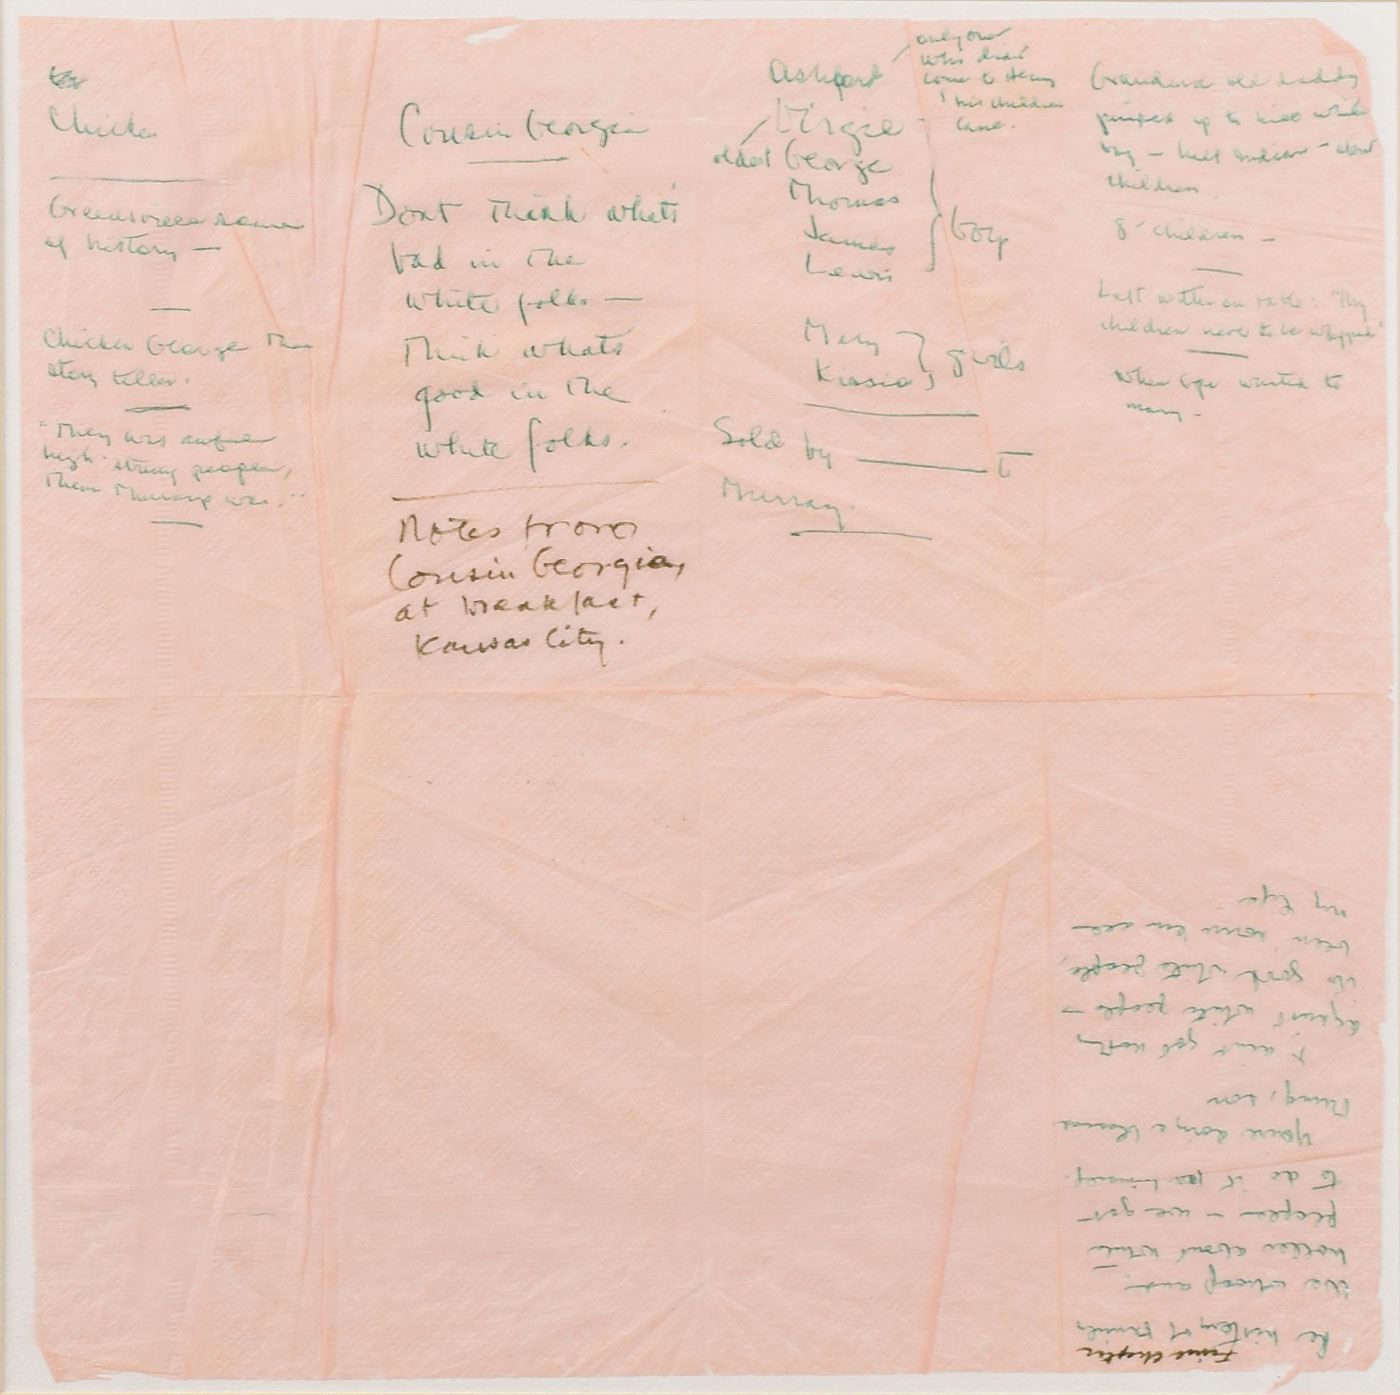 Chicken
Greensville
of history —
Chicken George the
story teller.
"They was awful
high-strung people,
them Murrays was."
Cousin Georgia
Don't think what's
bad in the
white folks —
Think what's
good in the
white folks.
Notes from
Cousin Georgia,
at breakfast,
Kansas City.
Ashford
only one
who didn't
come to Henry
his children
Virgie
oldest George
Thomas
James
Lewis
boys
Mary
girls
Sold by ______ to
Murray.
Grandma old daddy
up to
boy — half Indian — about
children.
8 children —
Left written on table: "My
children never to be whipped"
When wanted to
marry.
history of family
holler about white
people — we got
to do it
You're doing a
thing, son
I ain't got nothing
against white people —
good white people,
been some in all
my life